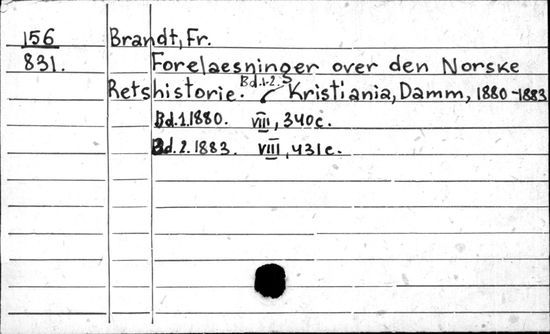 156 Brandt, Fr.
831. Forelaesninger over den Norske
Retshistorie. Bd.1-2. Kristiania, Damm, 1880-1883
Bd.1.1880. VIII, 340c.
Bd.2.1883. VIII, 431c.